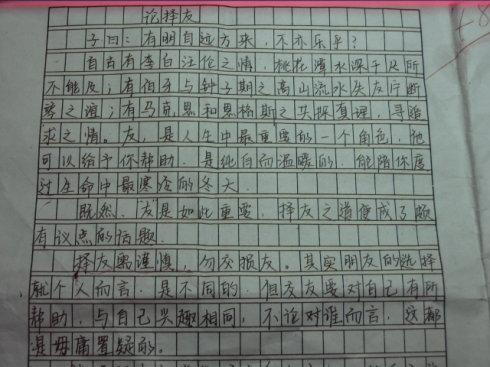 论择友
子曰：有朋自远方来，不亦乐乎？
自古有李白汪伦之情，桃花潭水深千尺所
不能及；有伯牙与钟子期之高山流水失友片断
琴之谊；有马克思和恩格斯之共探真理，寻
求之情。友，是人生中最重要的一个角色，他
可以给予你帮助，是纯白而温暖的，能陪你度
过生命中最寒冷的冬天。
既然，友是如此重要，择友之道便成了颇
有议点的话题。
择友需谨慎，勿交损友。其实朋友的选择
就个人而言，是不同的，但交友要对自己有所
帮助，与自己兴趣相同，不论对谁而言，这都
是毋庸置疑的。